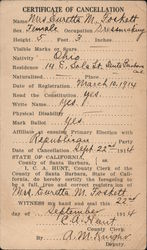 CERTIFICATE OF CANCELLATION
Name Mrs. Suretta M. Foskett
Sex. Female Occupation Dressmaking
Height 5 Feet 3 Inches
Visible Marks or Scars
Nativity Ohio
Residence 14 E. Sola St. Santa Barbara
Naturalized Place
Date of Registration March 10, 1914
Read the Constitution yes.
Write Name yes.
Physical Disability
Mark Ballot yes.
Affiliate at ensuing Primary Election with
Republican Party
Date of Cancellation Sept 22nd 1914
STATE OF CALIFORNIA,
County of Santa Barbara, ss
I, C. A. HUNT, County Clerk of the
County of Santa Barbara, State of Cali-
fornia, do hereby certify the foregoing to
be a full, true and correct registration of
Mrs. Suretta M. Foskett
WITNESS my hand and seal this 22nd
day of September 1914
C. A. Hunt
County Clerk.
By A. M.